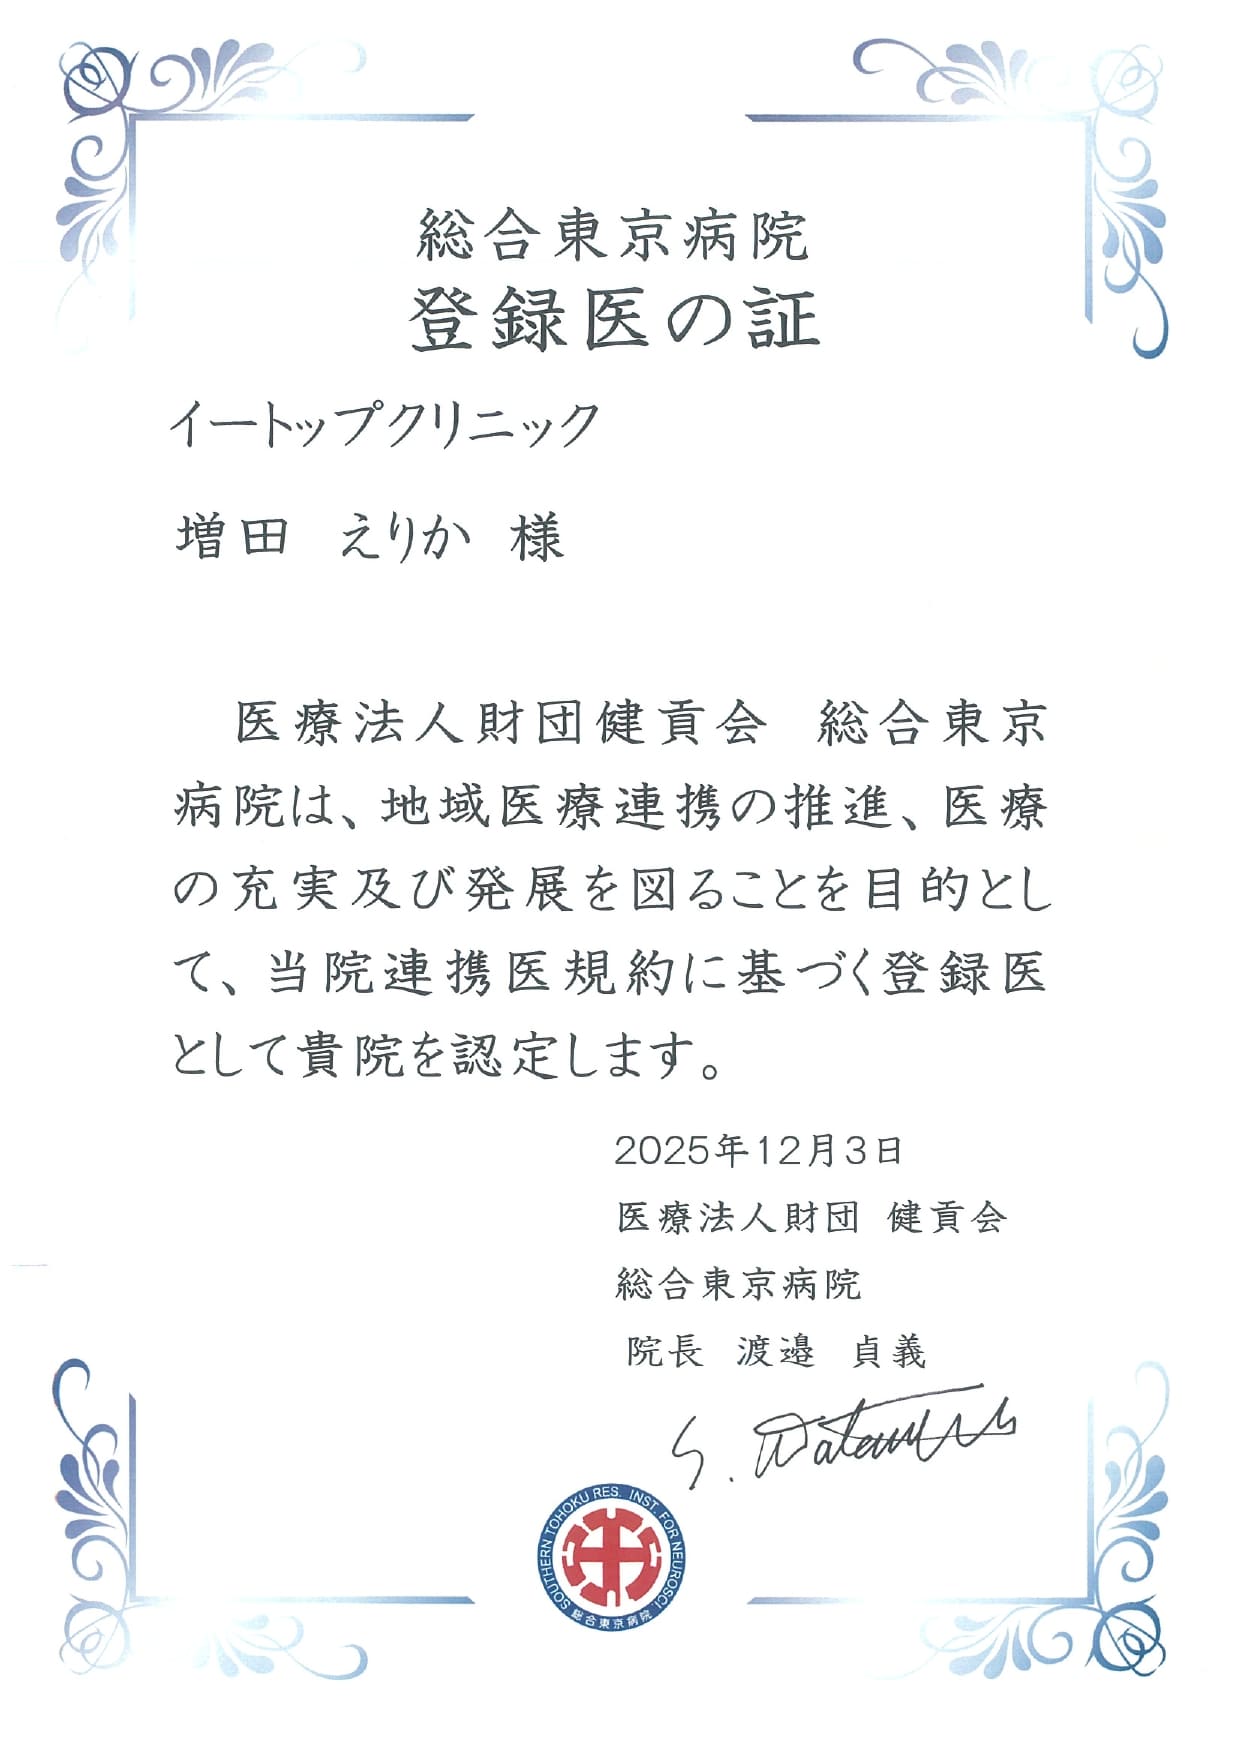 総合東京病院
登録医の証
イートップクリニック
増田 えりか 様
医療法人財団健貢会 総合東京
病院は、地域医療連携の推進、医療
の充実及び発展を図ることを目的とし
て、当院連携医規約に基づく登録医
として貴院を認定します。
2025年12月3日
医療法人財団 健貢会
総合東京病院
院長 渡邉 貞義
SOUTHERN TOHOKU RES. INST. FOR NEUROSCI.
総合東京病院